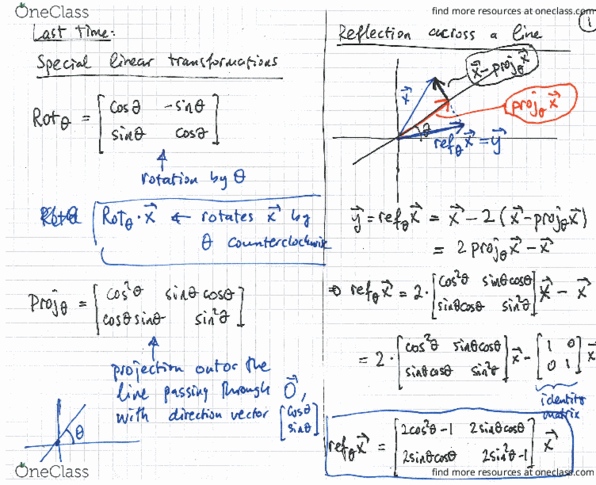 OneClass
find more resources at oneclass.com
1
Last time:
Special linear transformations
Rotθ = [cosθ -sinθ
sinθ cosθ]
rotation by θ
Rotθ · x⃗ ← rotates x⃗ by
θ counterclockwise
Projθ = [cos²θ sinθcosθ
cosθsinθ sin²θ]
projection onto the
line passing through 0⃗,
with direction vector [cosθ
sinθ]
θ
Reflection across a line
x⃗-projθx⃗
x⃗
projθx⃗
θ
refθx⃗ = y⃗
y⃗ = refθx⃗ = x⃗ - 2(x⃗-projθx⃗)
= 2projθx⃗ - x⃗
⇒ refθx⃗ = 2·[cos²θ sinθcosθ
sinθcosθ sin²θ]x⃗ - x⃗
= 2·[cos²θ sinθcosθ
sinθcosθ sin²θ]x⃗ - [1 0
0 1]x⃗
identity
matrix
refθx⃗ = [2cos²θ-1 2sinθcosθ
2sinθcosθ 2sin²θ-1]x⃗
OneClass
find more resources at oneclass.com